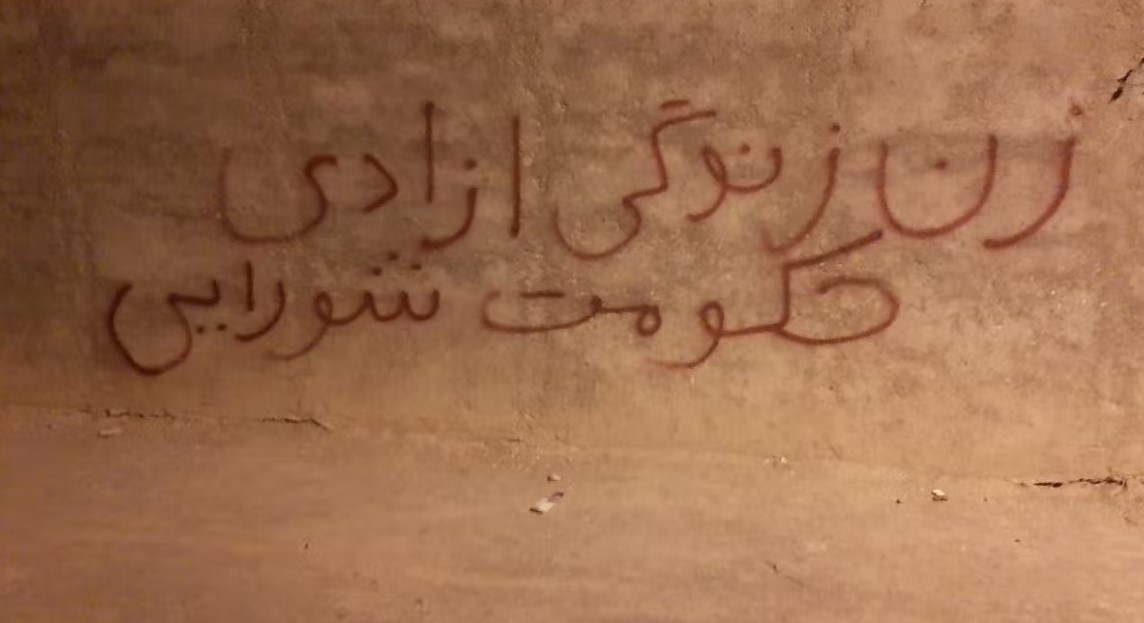 زن زندگی ازادی
حکومت شورایی